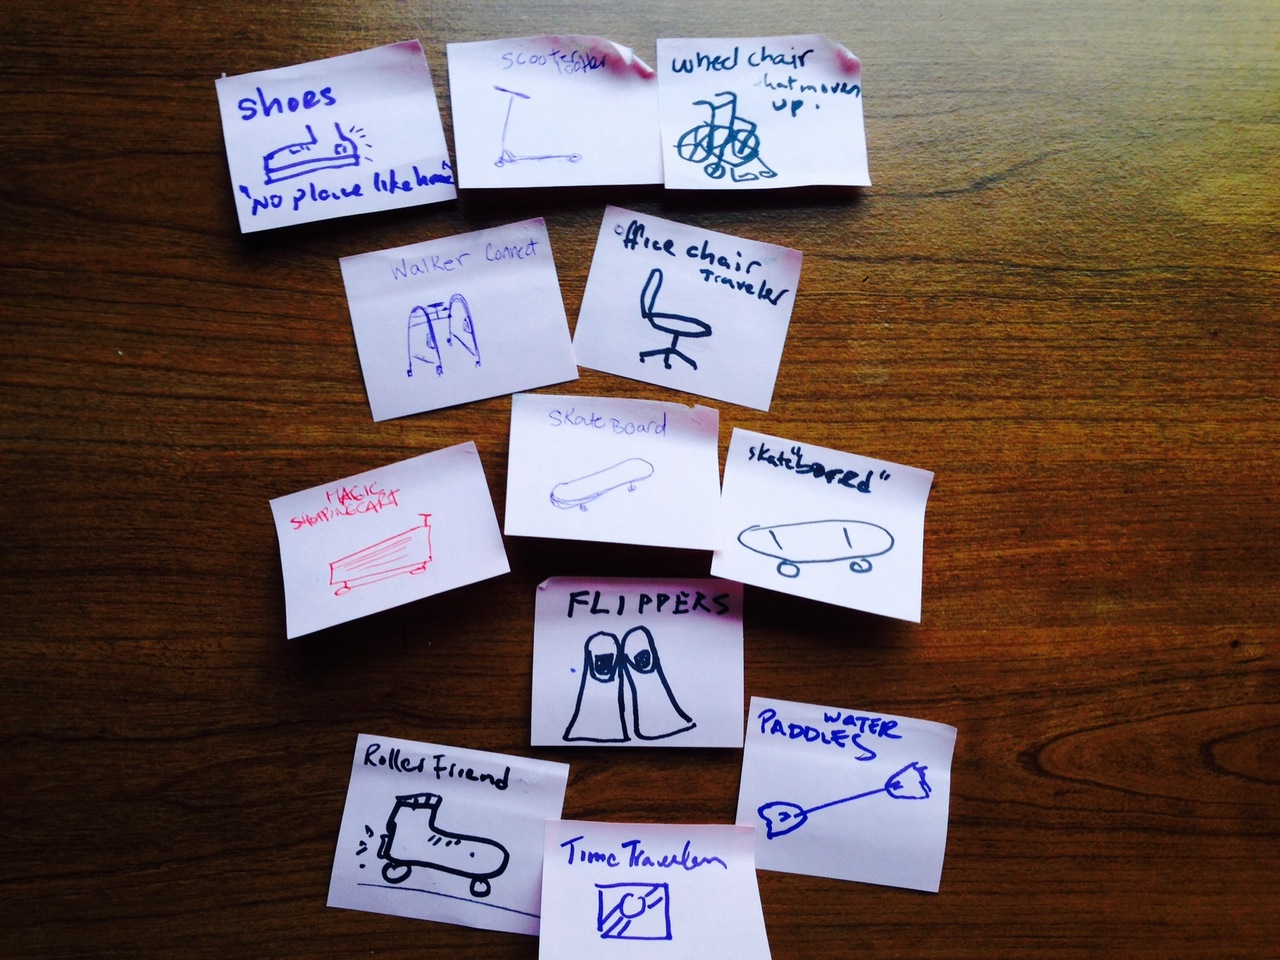 shoes
"No place like home"
scooter
wheel chair
that moves
up.
Walker Connect
office chair
Traveler
SKateBoard
skate"bored"
MAGIC
SHOPPING CART
FLIPPERS
WATER
PADDLES
Roller Friend
Time Traveler